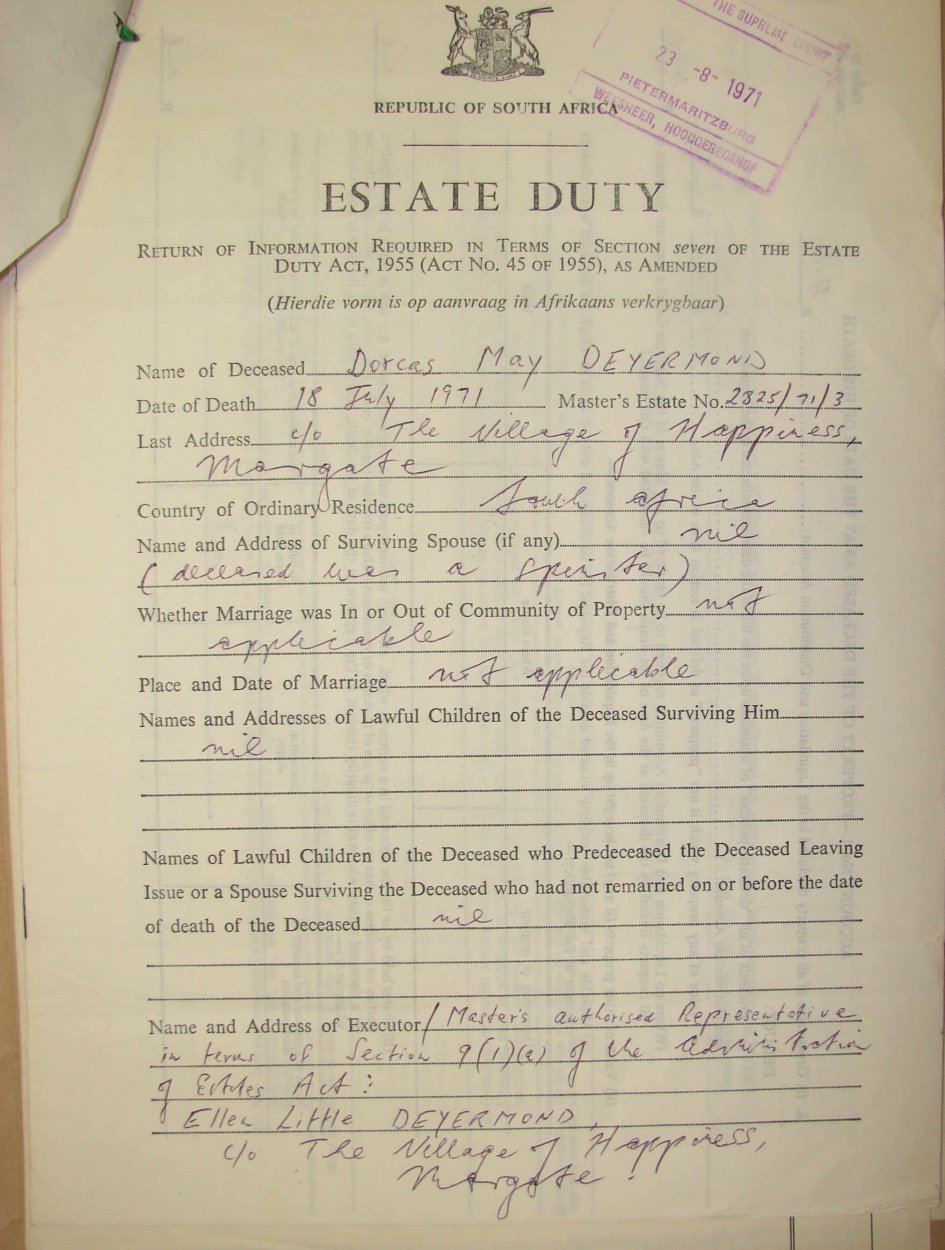 THE SUPREME COURT
23 -8- 1971
PIETERMARITZBURG
WEESHEER, HOOGGEREGSHOF
REPUBLIC OF SOUTH AFRICA
ESTATE DUTY
RETURN OF INFORMATION REQUIRED IN TERMS OF SECTION seven OF THE ESTATE
DUTY ACT, 1955 (ACT NO. 45 OF 1955), AS AMENDED
(Hierdie vorm is op aanvraag in Afrikaans verkrygbaar)
Name of Deceased Dorcas May DEYERMOND
Date of Death 18 July 1971 Master's Estate No. 2825/71/3
Last Address c/o The Village of Happiness,
Margate
Country of Ordinary Residence South Africa
Name and Address of Surviving Spouse (if any) nil
(deceased was a spinster)
Whether Marriage was In or Out of Community of Property not
applicable
Place and Date of Marriage not applicable
Names and Addresses of Lawful Children of the Deceased Surviving Him
nil
Names of Lawful Children of the Deceased who Predeceased the Deceased Leaving
Issue or a Spouse Surviving the Deceased who had not remarried on or before the date
of death of the Deceased nil
Name and Address of Executor / Master's authorised Representative
in terms of Section 9(1)(a) of the Administration
of Estates Act:
Ellen Little DEYERMOND,
c/o The Village of Happiness,
Margate.